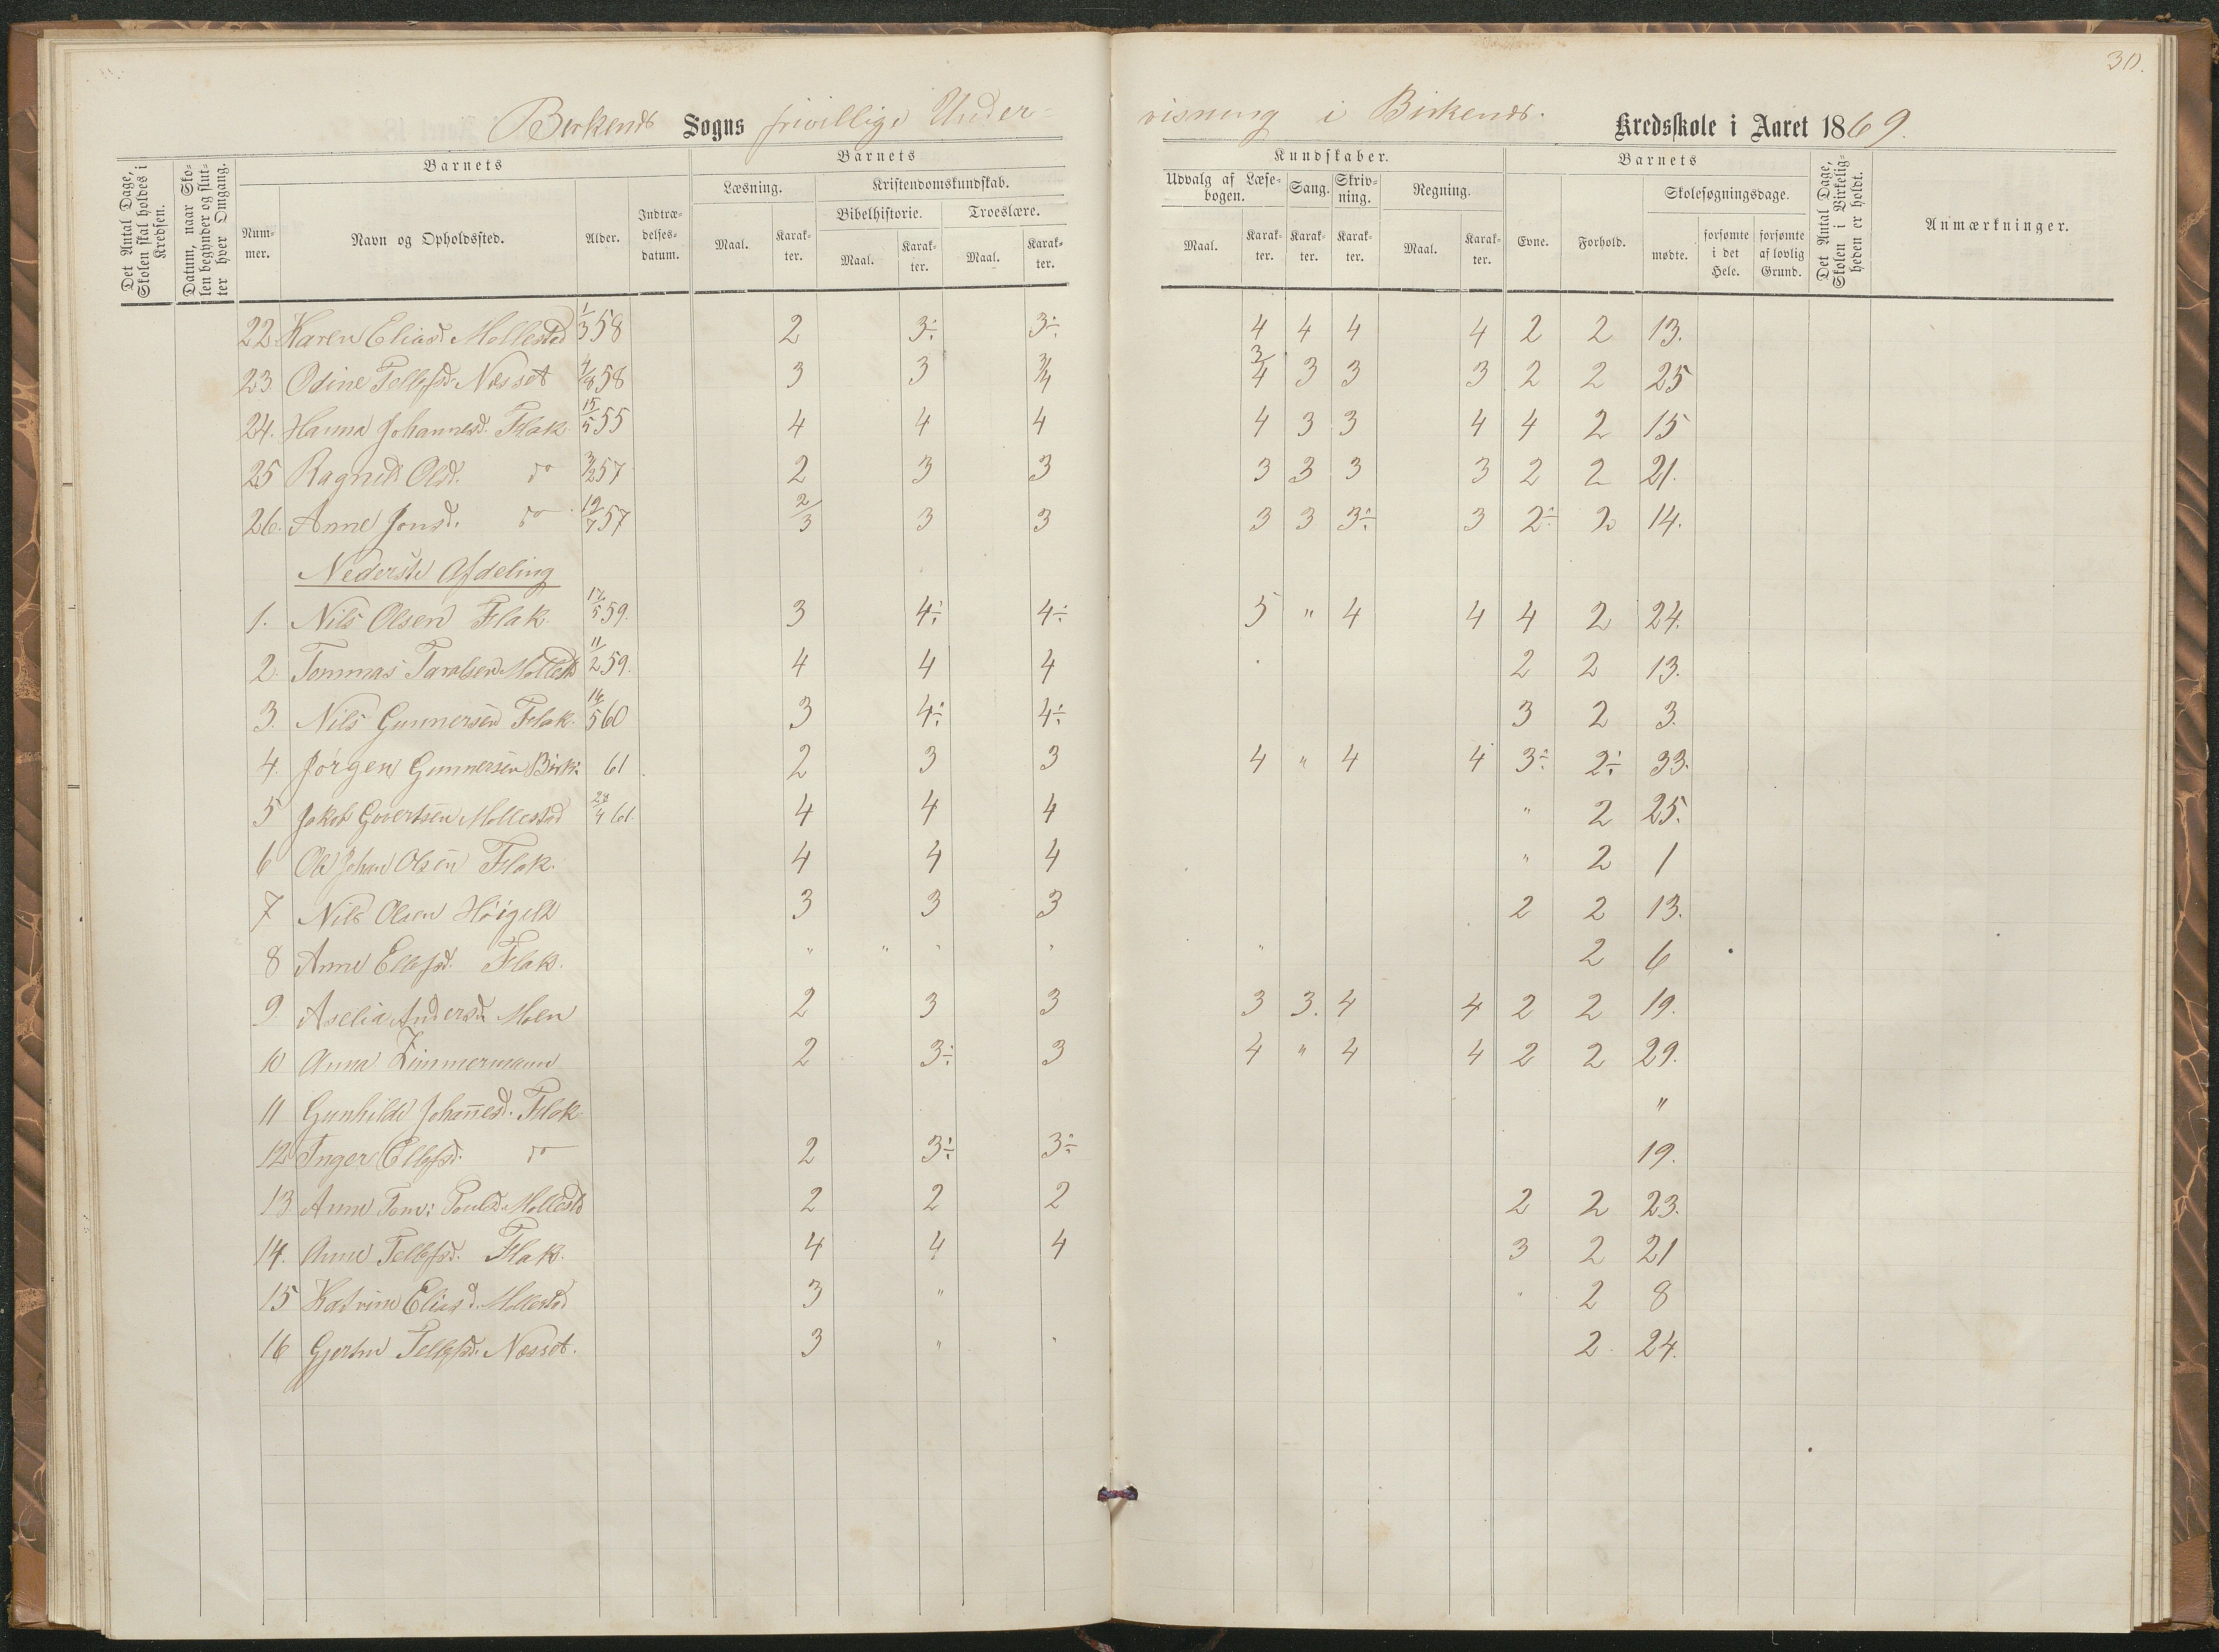 30.
Birkends Sogns frivillige Under- visning i Birkends. Kredsskole i Aaret 1869.
Det Antal Dage, Skolen skal holdes i Kredsen.
Datum, naar Skolen begynder og slutter hver Omgang.
Barnets
Nummer.
Navn og Opholdssted.
Alder.
Indtrædelsesdatum.
Barnets
Læsning.
Maal. Karakter.
Kristendomskundskab.
Bibelhistorie.
Maal. Karakter.
Troeslære.
Maal. Karakter.
Kundskaber.
Udvalg af Læsebogen.
Maal. Karakter.
Sang.
Karakter.
Skrivning.
Karakter.
Regning.
Maal. Karakter.
Barnets
Evne.
Forhold.
Skolesøgningsdage.
mødte.
forsømte i det Hele.
forsømte af lovlig Grund.
Det Antal Dage, Skolen i Virkeligheden er holdt.
Anmærkninger.
22 Karen Eliasd. Mollestad 1/3 58 2 3÷ 3÷ 4 4 4 4 2 2 13.
23 Odine Tellefsd. Nesset 4/8 58 3 3 3/4 3/4 3 3 3 2 2 25
24. Hanna Johannesd. Flak 15/5 55 4 4 4 4 3 3 4 4 2 15
25 Ragnild Olsd. do 3/2 57 2 3 3 3 3 3 3 2 2 21.
26. Anne Jonsd. do 12/7 57 2/3 3 3 3 3 3÷ 3 2÷ 2 14.
Nederste Afdeling
1. Nils Olsen Flak. 17/5 59. 3 4÷ 4÷ 5 " 4 4 4 2 24.
2. Tommas Taralsen Mollest 11/2 59. 4 4 4 2 2 13.
3. Nils Gunnersen Flak. 16/5 60 3 4÷ 4÷ 3 2 3.
4. Jörgen Gunnersen Birk: 61 2 3 3 4 " 4 4 3÷ 2÷ 33.
5 Jakob Govertsen Mollestad 28/4 61. 4 4 4 " 2 25.
6 Ole Johan Olsen Flak. 4 4 4 " 2 1
7 Nils Olsen Höigild 3 3 3 2 2 13.
8 Anne Ellefsd. Flak. " " " " " 2 6
9 Aselia Andersd. Moen 2 3 3 3 3. 4 4 2 2 19.
10 Anna Zimmermann 2 3÷ 3 4 " 4 4 2 2 29.
11 Gunhilde Johannesd. Flak "
12 Inger Ellefsd. do 2 3÷ 3÷ 19.
13 Anne Tom: Pouls. Mollestd 2 2 2 2 2 23.
14. Anne Tellefsd. Flak. 4 4 4 3 2 21
15 Katrine Eliasd. Mollestad 3 " " 2 8
16 Gjertine Tellefsd. Nesset. 3 " " 2 24.